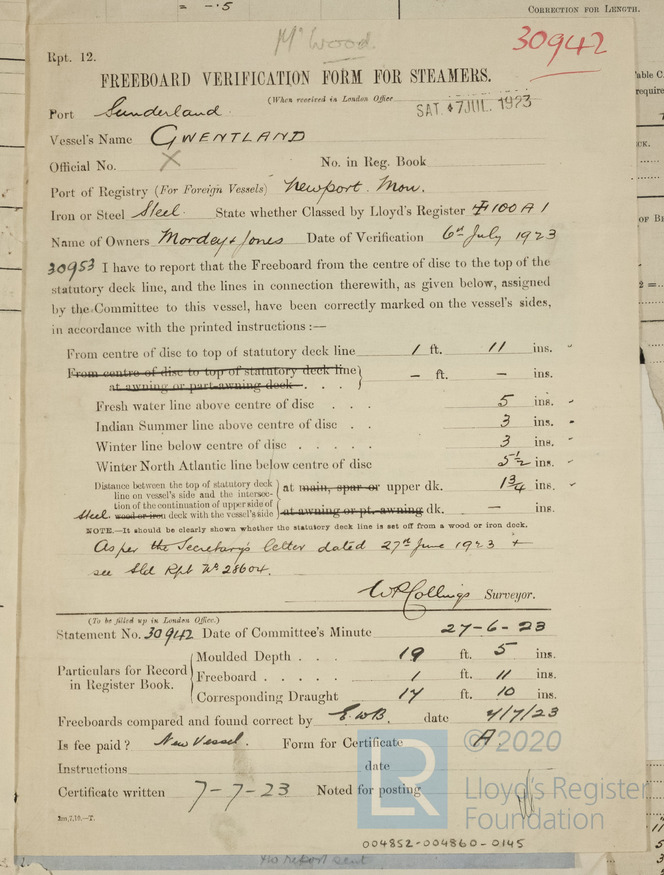 = -·5
CORRECTION FOR LENGTH.
Mr Wood.
30942
Rpt. 12.
FREEBOARD VERIFICATION FORM FOR STEAMERS.
(When received in London Office
SAT. 7 JUL. 1923
Port Sunderland
Vessel's Name GWENTLAND
Official No. X No. in Reg. Book
Port of Registry (For Foreign Vessels) Newport. Mon.
Iron or Steel Steel. State whether Classed by Lloyd's Register ✠ 100 A 1
Name of Owners Mordey & Jones Date of Verification 6th July 1923
30953 I have to report that the Freeboard from the centre of disc to the top of the
statutory deck line, and the lines in connection therewith, as given below, assigned
by the Committee to this vessel, have been correctly marked on the vessel's sides,
in accordance with the printed instructions :—
From centre of disc to top of statutory deck line 1 ft. 11 ins.
From centre of disc to top of statutory deck line
at awning or part-awning deck . . . – ft. – ins.
Fresh water line above centre of disc . . . 5 ins.
Indian Summer line above centre of disc . . 3 ins.
Winter line below centre of disc . . . . . 3 ins.
Winter North Atlantic line below centre of disc 5½ ins.
Distance between the top of statutory deck
line on vessel's side and the intersec- at main, spar or upper dk. 1¾ ins.
tion of the continuation of upper side of
Steel wood or iron deck with the vessel's side at awning or pt. awning dk. – ins.
NOTE.—It should be clearly shown whether the statutory deck line is set off from a wood or iron deck.
As per the Secretary's letter dated 27th June 1923 +
see Sld Rpt No 28604.
WR Collings Surveyor.
(To be filled up in London Office.)
Statement No. 30942 Date of Committee's Minute 27-6-23
Particulars for Record
in Register Book.
Moulded Depth . . . 19 ft. 5 ins.
Freeboard . . . . . 1 ft. 11 ins.
Corresponding Draught 17 ft. 10 ins.
Freeboards compared and found correct by E.W.B. date 4/7/23
Is fee paid? New Vessel. Form for Certificate A.
Instructions date
Certificate written 7-7-23 Noted for posting
© 2020
LR
Lloyd's Register
Foundation
004852-004860-0145